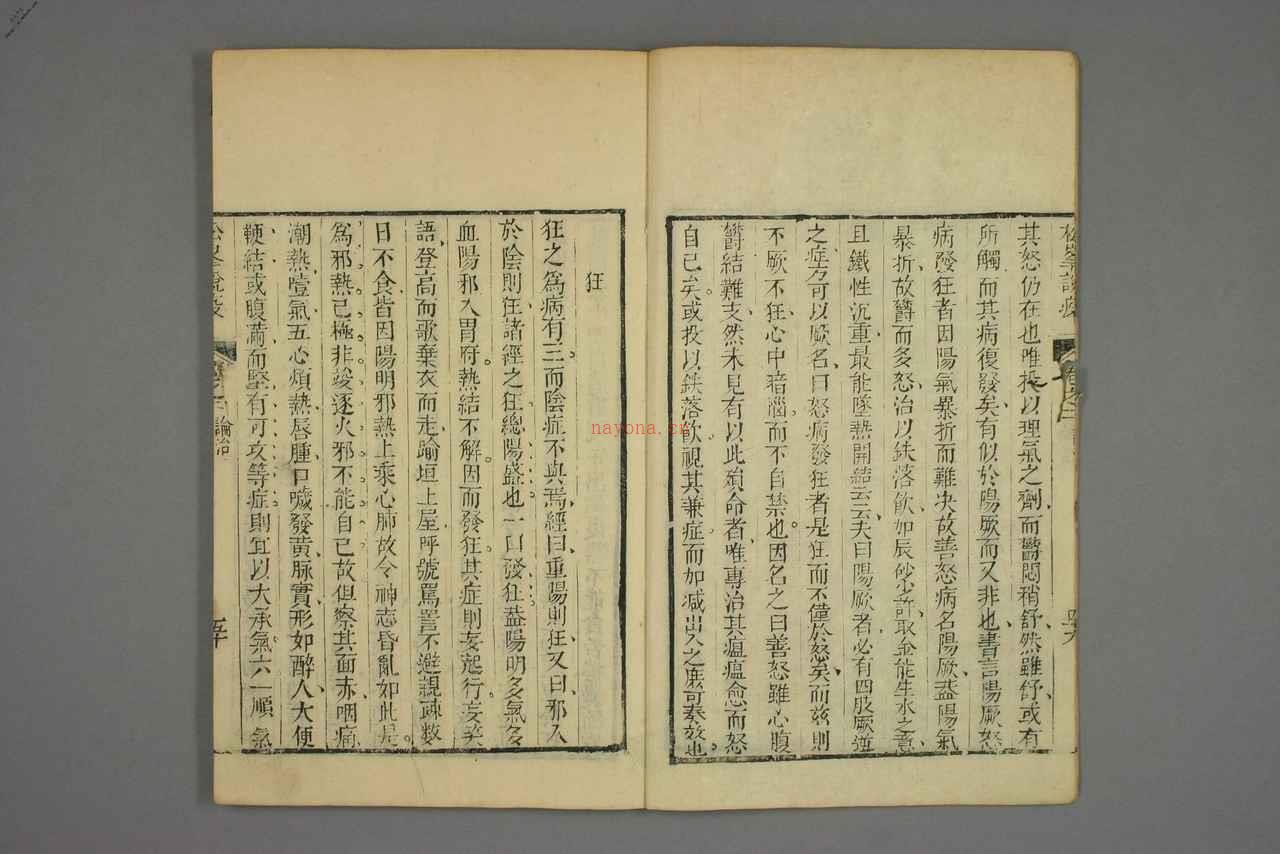 其怒仍在也唯投以理氣之劑而鬱悶稍舒然雖舒或有
所觸而其病復發矣有似於陽厥而又非也書言陽厥怒
病發狂者因陽氣暴折而難決故善怒病名陽厥蓋陽氣
暴折故鬱而多怒治以鉄落飲如辰砂許取金能生水之意
且鐵性沉重最能墜熱開結云云夫曰陽厥者必有四肢厥逆
之症方可以厥名曰怒病發狂者是狂而不僅於怒矣而兹則
不厥不狂心中暗惱而不自禁也因名之曰善怒雖心腹
鬱結難支然未見有以此殞命者唯專治其瘟瘟愈而怒
自已矣或投以鉄落飲視其兼症而加减出入之庶可奏效也
狂
狂之爲病有三而陰症不與焉經曰重陽則狂又曰邪入
於陰則狂諸經之狂總陽盛也一曰發狂葢陽明多氣多
血陽邪入胃府熱結不解因而發狂其症則妄起行妄笑
語登高而歌棄衣而走踰垣上屋呼號罵詈不避親疎數
日不食皆因陽明邪熱上乘心肺故令神志昏亂如此是
爲邪熱已極非峻逐火邪不能自已故但察其面赤咽痛
潮熱噎氣五心煩熱唇腫口噦發黄脉實形如醉人大便
鞕結或腹滿而堅有可攻等症則宜以大承氣六一順氣
松峯說疫
卷之二
論治
五十
nayona.cn